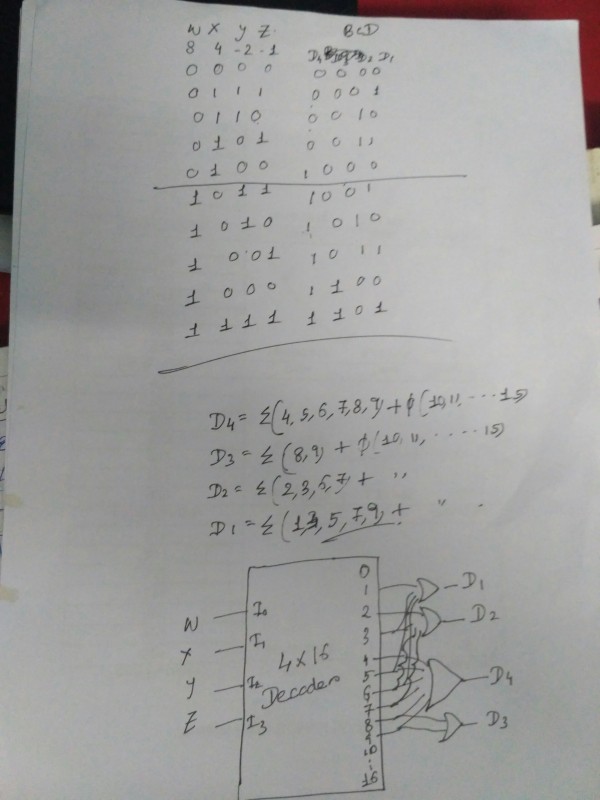 W X Y Z BCD
8 4 -2 -1 D4 D2 D1
0 0 0 0 0 0 0 0
0 1 1 1 0 0 0 1
0 1 1 0 0 0 1 0
0 1 0 1 0 0 1 1
0 1 0 0 1 0 0 0
1 0 1 1 1 0 0 1
1 0 1 0 1 0 1 0
1 0 0 1 1 0 1 1
1 0 0 0 1 1 0 0
1 1 1 1 1 1 0 1
D4 = Σ(4,5,6,7,8,9) + φ(10,11, ---- 15)
D3 = Σ(8,9) + φ(10,11, ----- 15)
D2 = Σ(2,3,5,7) + "
D1 = Σ(1,3,5,7,9) + " .
0
1 D1
W I0 2 D2
X I1 3
4x16 4
Y I2 Decoder 5 D4
6
Z I3 7
8 D3
9
10
:
16